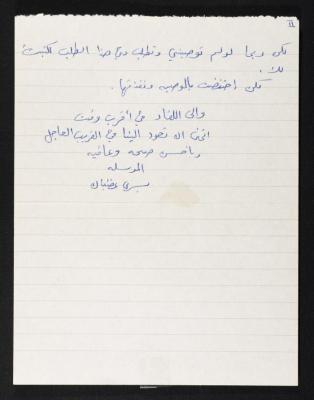 II
لكن ربما لو لم توصيني وتطلب مني هذا الطلب لكتبت
لك.
لكن احتفظت بالوصيه ونفذتها.
والى اللقاء في أقرب وقت
اتمنى ان تعود الينا في القريب العاجل
باحسن صحه وعافيه
المرسله
يسرى